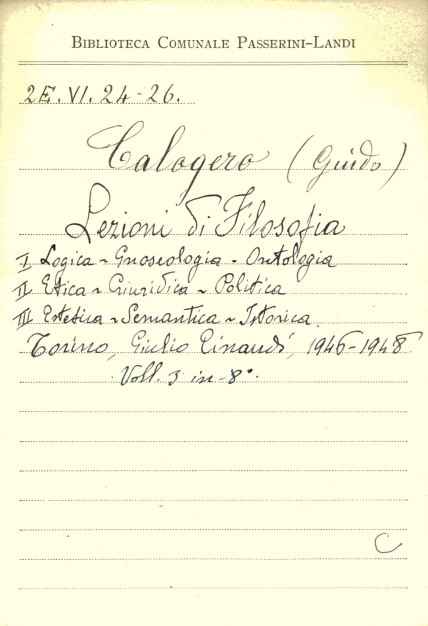 BIBLIOTECA COMUNALE PASSERINI-LANDI
2E. VI. 24-26.
Calogero (Guido)
Lezioni di Filosofia
I Logica - Gnoseologia - Ontologia
II Etica - Giuridica - Politica
III Estetica - Semantica - Istorica
Torino, Giulio Einaudi, 1946-1948.
Voll. 3 in-8°.
C